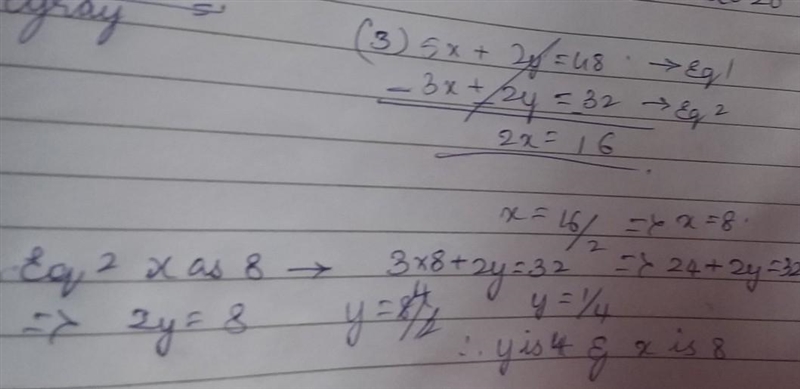 (3) 5x + 2y = 48 → Eq 1
- 3x + 2y = 32 → Eq 2
2x = 16
x = 16/2 => x = 8.
Eq 2 x as 8 → 3x8+2y=32 => 24+2y=32
=> 2y = 8 y = 8/2 4 y = 1/4
∴ y is 4 & x is 8